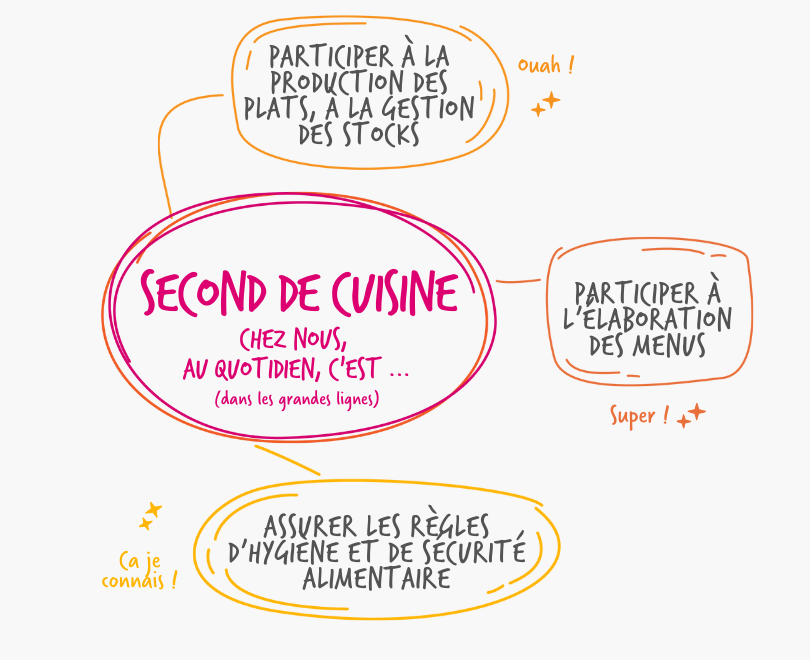 PARTICIPER À LA
PRODUCTION DES
PLATS, À LA GESTION
DES STOCKS
Ouah !
SECOND DE CUISINE
CHEZ NOUS,
AU QUOTIDIEN, C'EST ...
(dans les grandes lignes)
PARTICIPER À
L'ÉLABORATION
DES MENUS
Super !
ASSURER LES RÈGLES
D'HYGIÈNE ET DE SÉCURITÉ
ALIMENTAIRE
Ca je
connais !